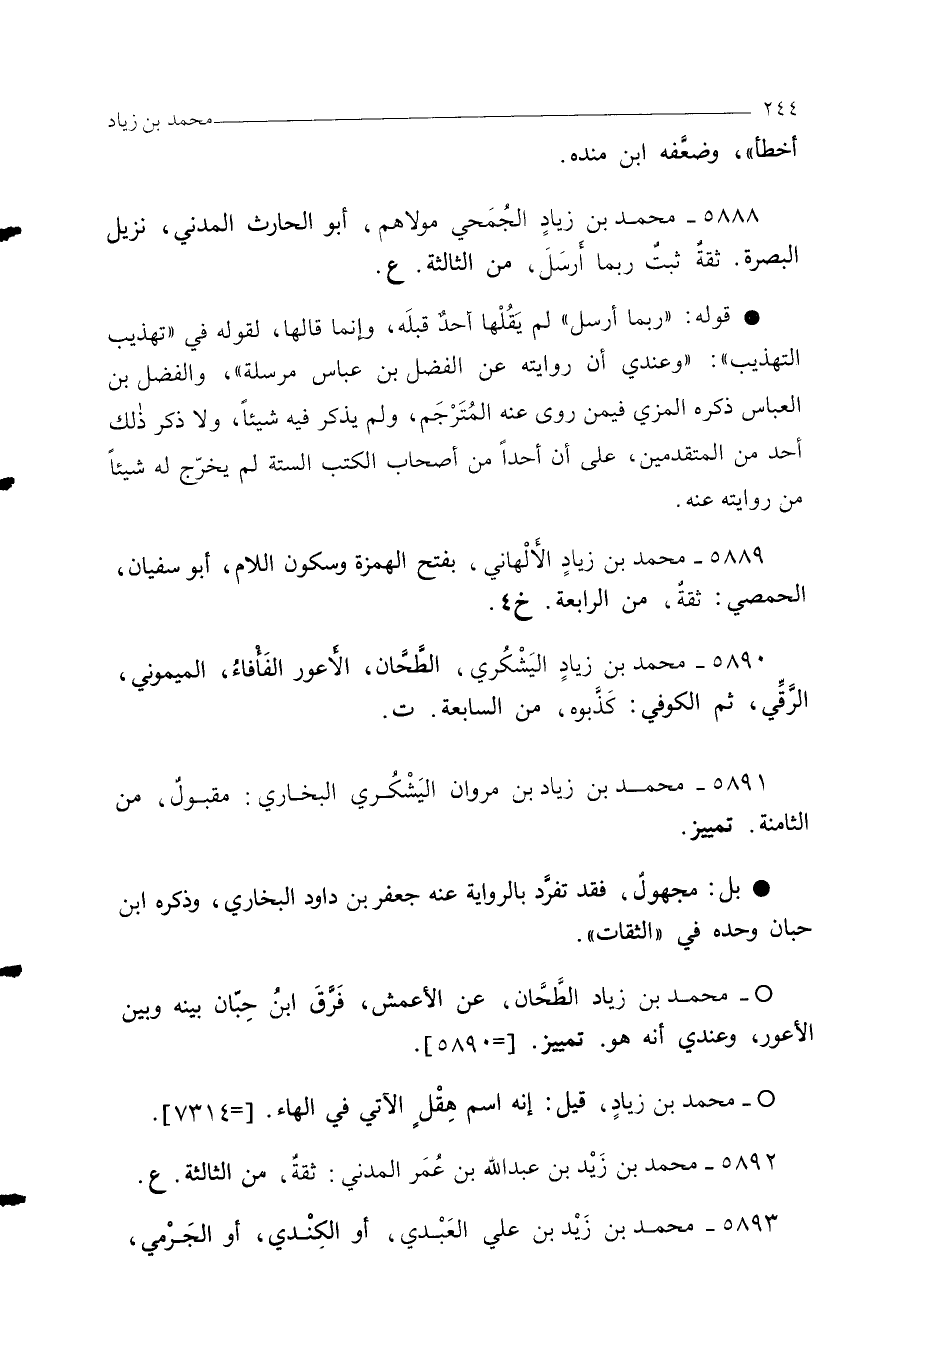 ٢٤٤ محمد بن زياد
أخطأ»، وضعَّفه ابن منده.
٥٨٨٨ ـ محمد بن زيادٍ الجُمَحي مولاهم، أبو الحارث المدني، نزيل
البصرة. ثقةٌ ثبتٌ ربما أَرسَلَ، من الثالثة. ع.
● قوله: «ربما أرسل» لم يَقُلْها أحدٌ قبلَه، وإنما قالها، لقوله في «تهذيب
التهذيب»: «وعندي أن روايته عن الفضل بن عباس مرسلة»، والفضل بن
العباس ذكره المزي فيمن روى عنه المُتَرْجَم، ولم يذكر فيه شيئاً، ولا ذكر ذٰلك
أحد من المتقدمين، على أن أحداً من أصحاب الكتب الستة لم يخرّج له شيئاً
من روايته عنه.
٥٨٨٩ ـ محمد بن زيادٍ الأَلْهاني، بفتح الهمزة وسكون اللام، أبو سفيان،
الحمصي: ثقةٌ، من الرابعة. خ٤.
٥٨٩٠ ـ محمد بن زيادٍ اليَشْكُري، الطَّحَّان، الأَعور الفَأْفاءُ، الميموني،
الرَّقِّي، ثم الكوفي: كَذَّبوه، من السابعة. ت.
٥٨٩١ ـ محمد بن زياد بن مروان اليَشْكُري البخاري: مقبولٌ، من
الثامنة. تمييز.
● بل: مجهولٌ، فقد تفرَّد بالرواية عنه جعفر بن داود البخاري، وذكره ابن
حبان وحده في «الثقات».
○ ـ محمد بن زياد الطَّحَّان، عن الأعمش، فَرَّقَ ابنُ حِبّان بينه وبين
الأعور، وعندي أنه هو. تمييز. [=٥٨٩٠].
○ ـ محمد بن زيادٍ، قيل: إنه اسم هِقْلٍ الآتي في الهاء. [=٧٣١٤].
٥٨٩٢ ـ محمد بن زَيْد بن عبدالله بن عُمَر المدني: ثقةٌ، من الثالثة. ع.
٥٨٩٣ ـ محمد بن زَيْد بن علي العَبْدي، أو الكِنْدي، أو الجَرْمي،